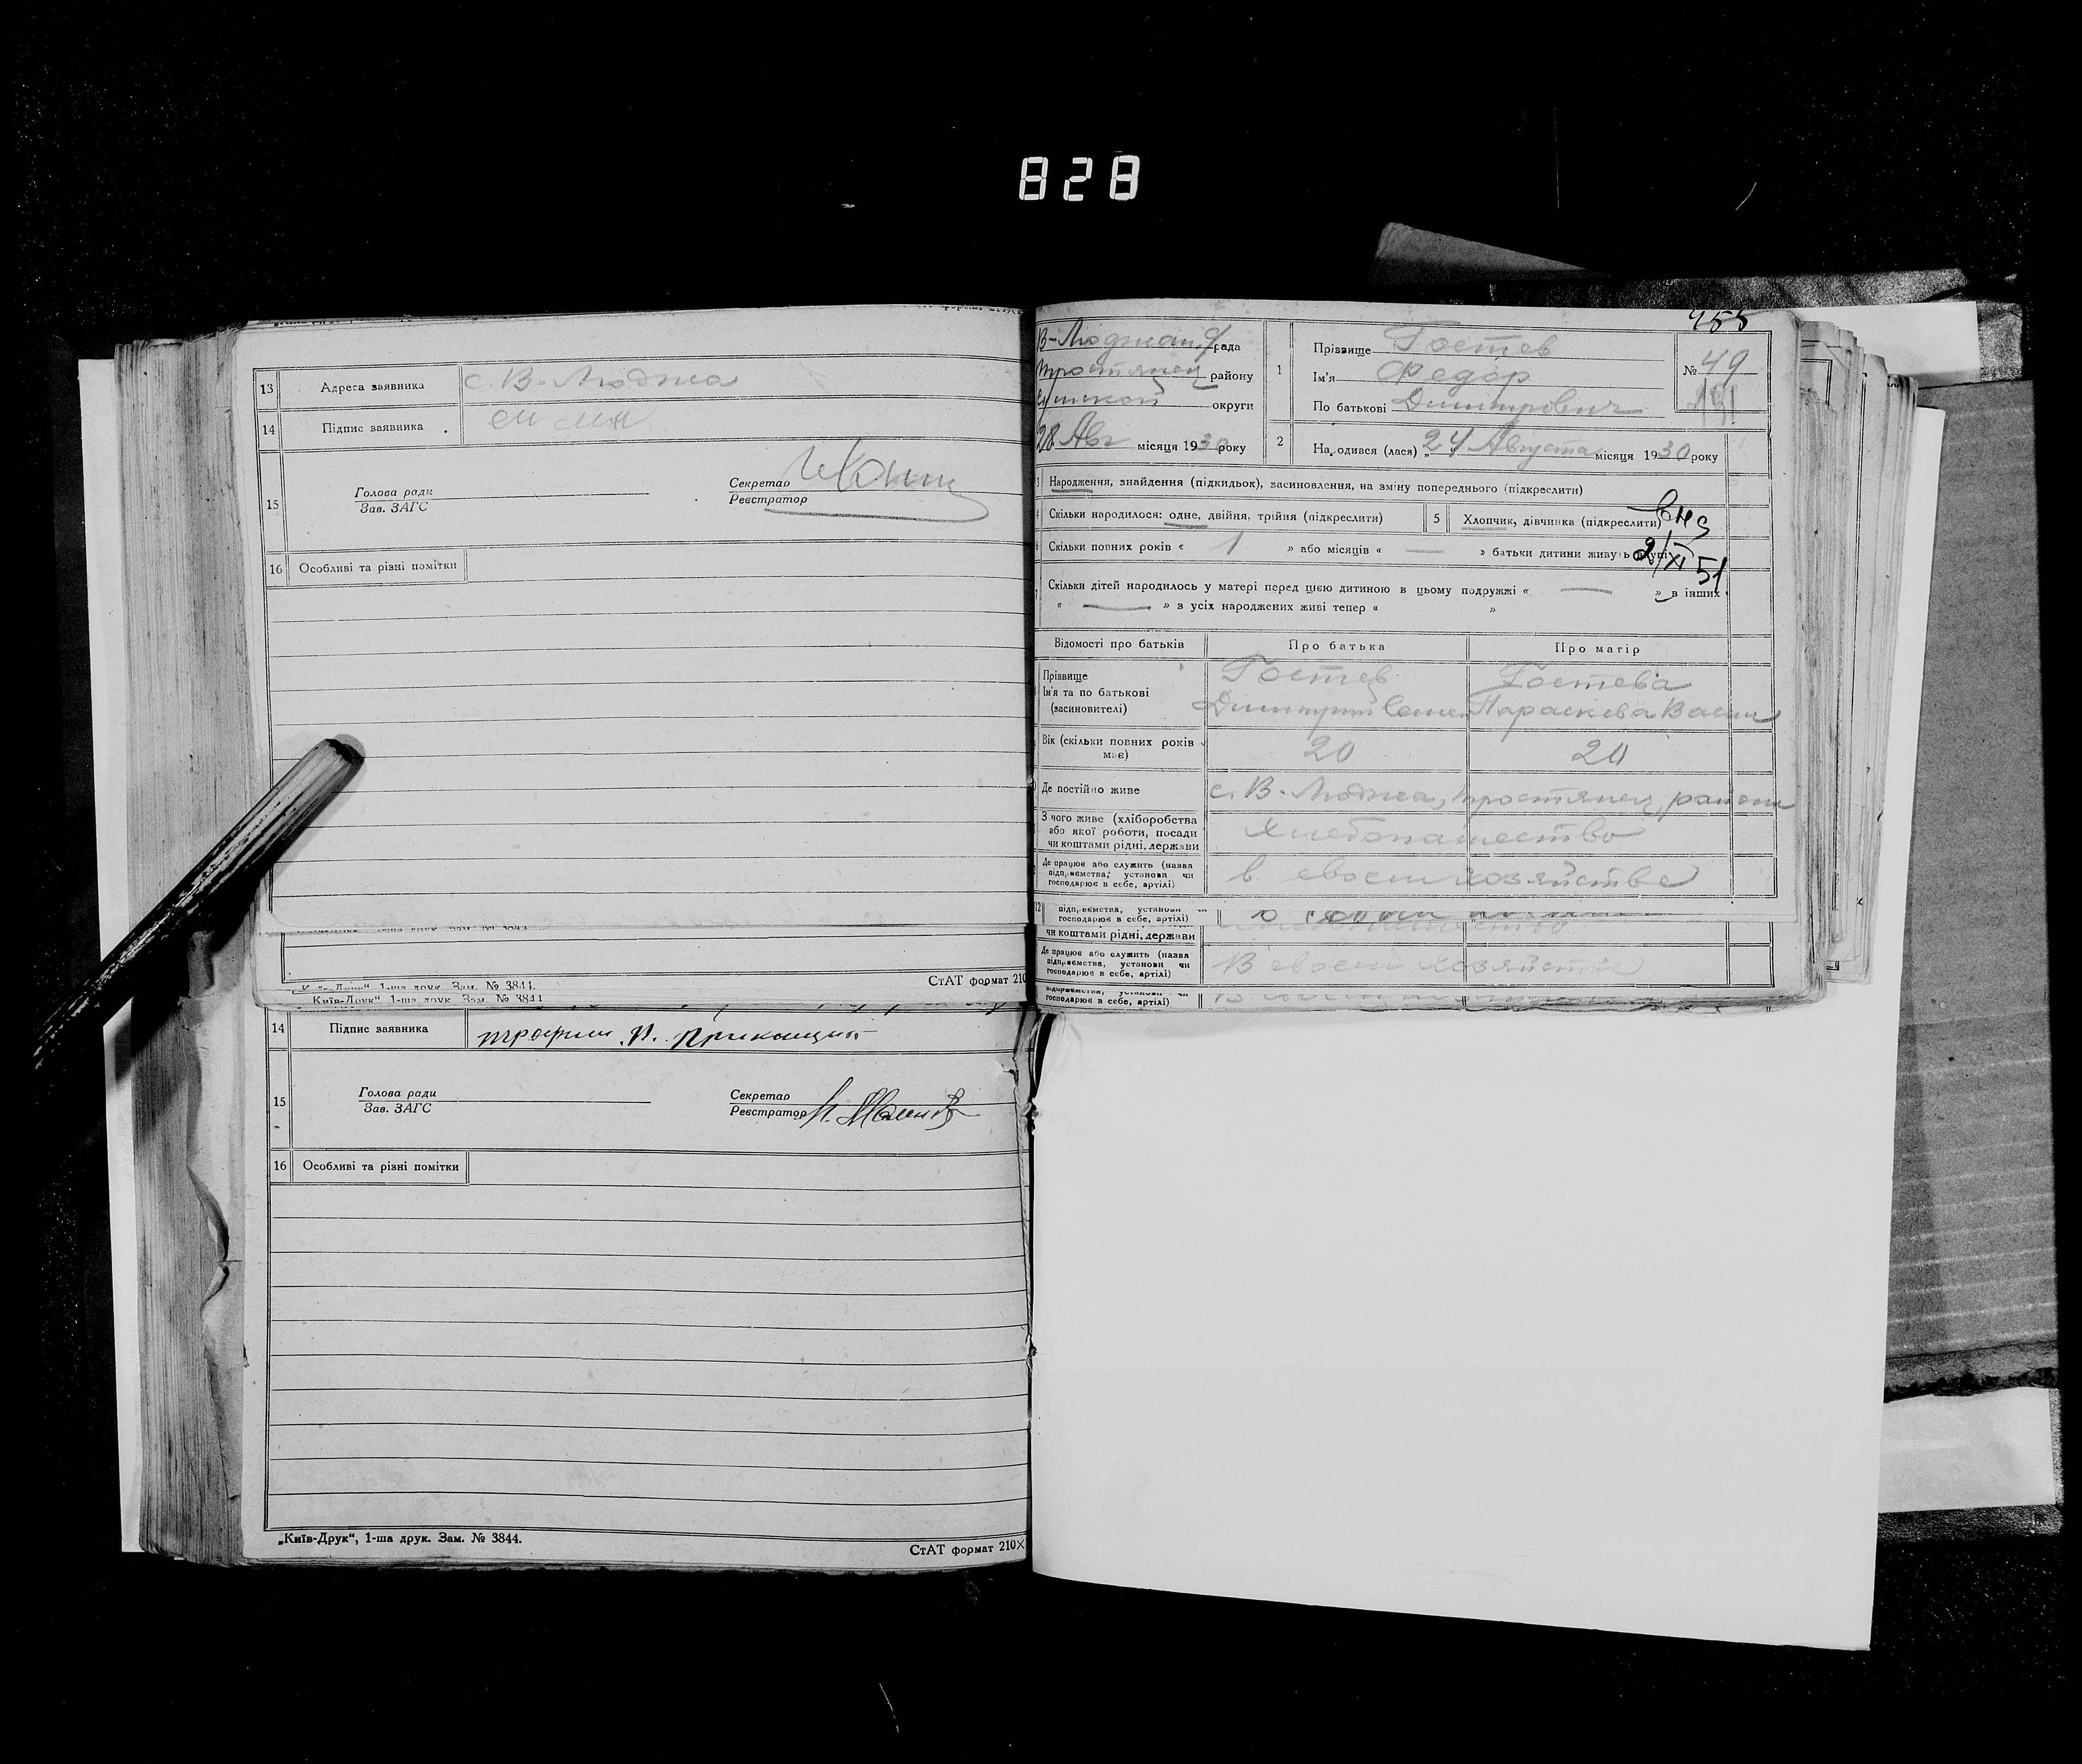 828
13 Адреса заявника с. В-Люджа
14 Підпис заявника
15 Голова ради
Зав. ЗАГС
Секретар
Реєстратор
16 Особливі та різні помітки
СтАТ формат 210
„Київ-Друк“, 1-ша друк. Зам. № 3844.
Київ-Друк“ 1-ша друк. Зам. № 3844
14 Підпис заявника
15 Голова ради
Зав. ЗАГС
Секретар
Реєстратор
16 Особливі та різні помітки
„Київ-Друк“, 1-ша друк. Зам. № 3844.
СтАТ формат 210×
455
рада
Тростянец району
округи
28 Авг місяця 1930 року
1 Прізвище Гостев
Ім'я Федор
По батькові Дмитрович
№ 49
2 Народився (лася) „24 Августа місяця 1930 року
Народження, знайдення (підкидьок), засиновлення, на зміну попереднього (підкреслити)
Скільки народилося: одне, двійня, трійня (підкреслити)
5 Хлопчик, дівчинка (підкреслити)
Скільки повних років « 1 » або місяців « — » батьки дитини живуть вкупі
2/XI 51
Скільки дітей народилось у матері перед цією дитиною в цьому подружжі « — » в інших
« — » з усіх народжених живі тепер « »
Відомості про батьків Про батька Про матір
Прізвище Гостев Гостева
Ім'я та по батькові
(засиновителі) Дмитрий Семен Параскева Васил
Вік (скільки повних років має) 20 20
Де постійно живе с. В-Люджа, Тростянец, района
З чого живе (хліборобства
або якої роботи, посади
чи коштами рідні, держави Хлебопашество
Де працює або служить (назва
підприємства, установи чи
господарює в себе, артілі) в своем хозяйстве
12 підприємства, установи чи
господарює в себе, артілі)
чи коштами рідні, держави
Де працює або служить (назва
підприємства, установи чи
господарює в себе, артілі) В своем хозяйстве
господарює в себе, артілі)